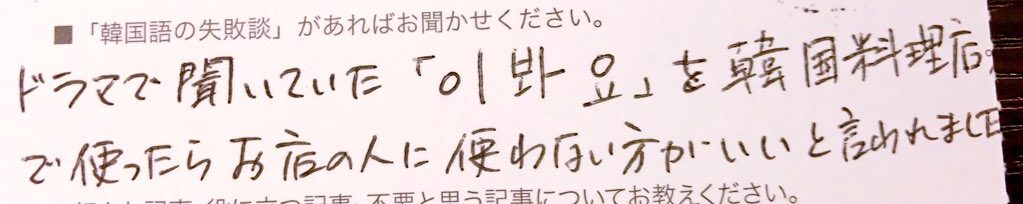 ■「韓国語の失敗談」があればお聞かせください。
ドラマで聞いていた「이봐요」を韓国料理店
で使ったらお店の人に使わない方がいいと言われました
役に立つ記事、不要と思う記事についてお教えください。